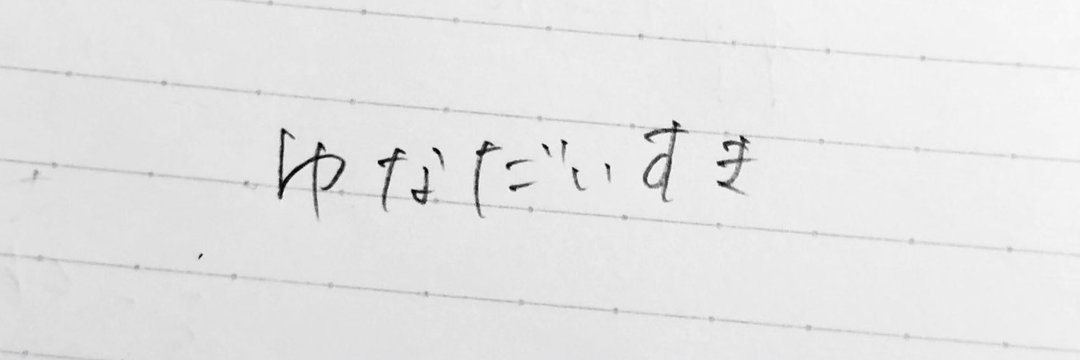 ゆなだいすき